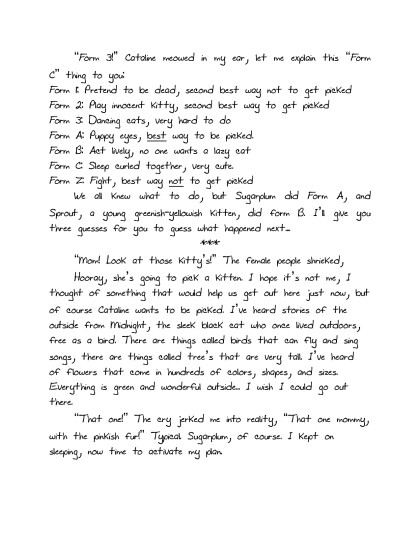 "Form 3!" Cataline meowed in my ear, let me explain this "Form
C" thing to you:
Form 1: Pretend to be dead, second best way not to get picked
Form 2: Play innocent Kitty, second best way to get picked
Form 3: Dancing cats, very hard to do
Form A: Puppy eyes, best way to be picked.
Form B: Act lively, no one wants a lazy cat
Form C: Sleep curled together, very cute.
Form Z: Fight, best way not to get picked
We all knew what to do, but Sugarplum did Form A, and
Sprout, a young greenish-yellowish Kitten, did form B. I'll give you
three guesses for you to guess what happened next...
***
"Mom! Look at those Kitty's!" The female people shrieked,
Hooray, she's going to pick a Kitten. I hope it's not me, I
thought of something that would help us get out here just now, but
of course Cataline wants to be picked. I've heard stories of the
outside from Midnight, the sleek black cat who once lived outdoors,
free as a bird. There are things called birds that can fly and sing
songs, there are things called tree's that are very tall. I've heard
of flowers that come in hundreds of colors, shapes, and sizes.
Everything is green and wonderful outside... I wish I could go out
there.
"That one!" The cry jerked me into reality, "That one mommy,
with the pinkish fur!" Typical Sugarplum, of course. I kept on
sleeping, now time to activate my plan.